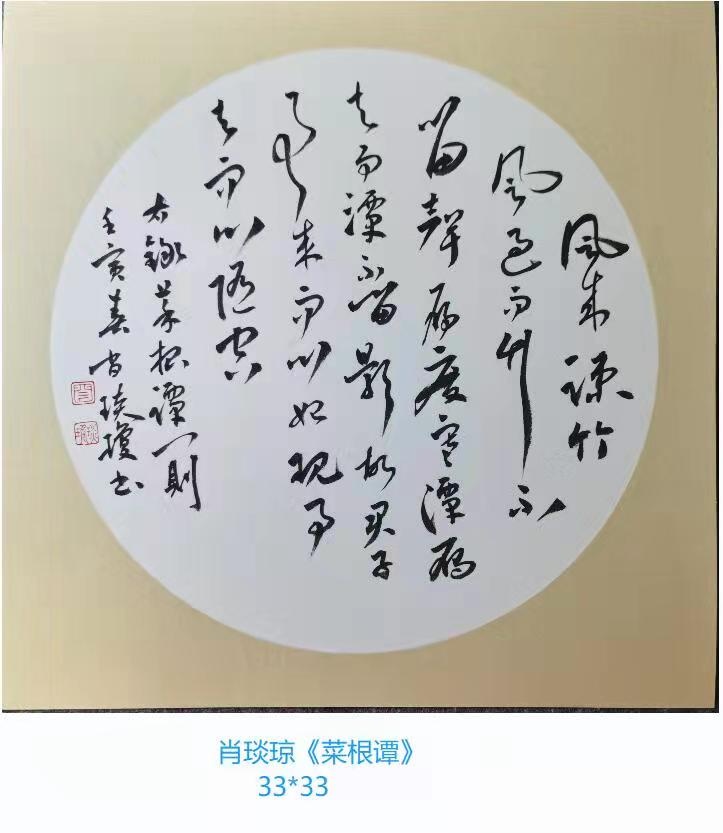 风来疎竹
风过而竹不
留聲雁度寒潭雁
去而潭不留影故君子
事来而心始现事
去而心随空
右録菜根谭一則
壬寅春肖琰瓊书
肖琰琼《菜根谭》
33*33